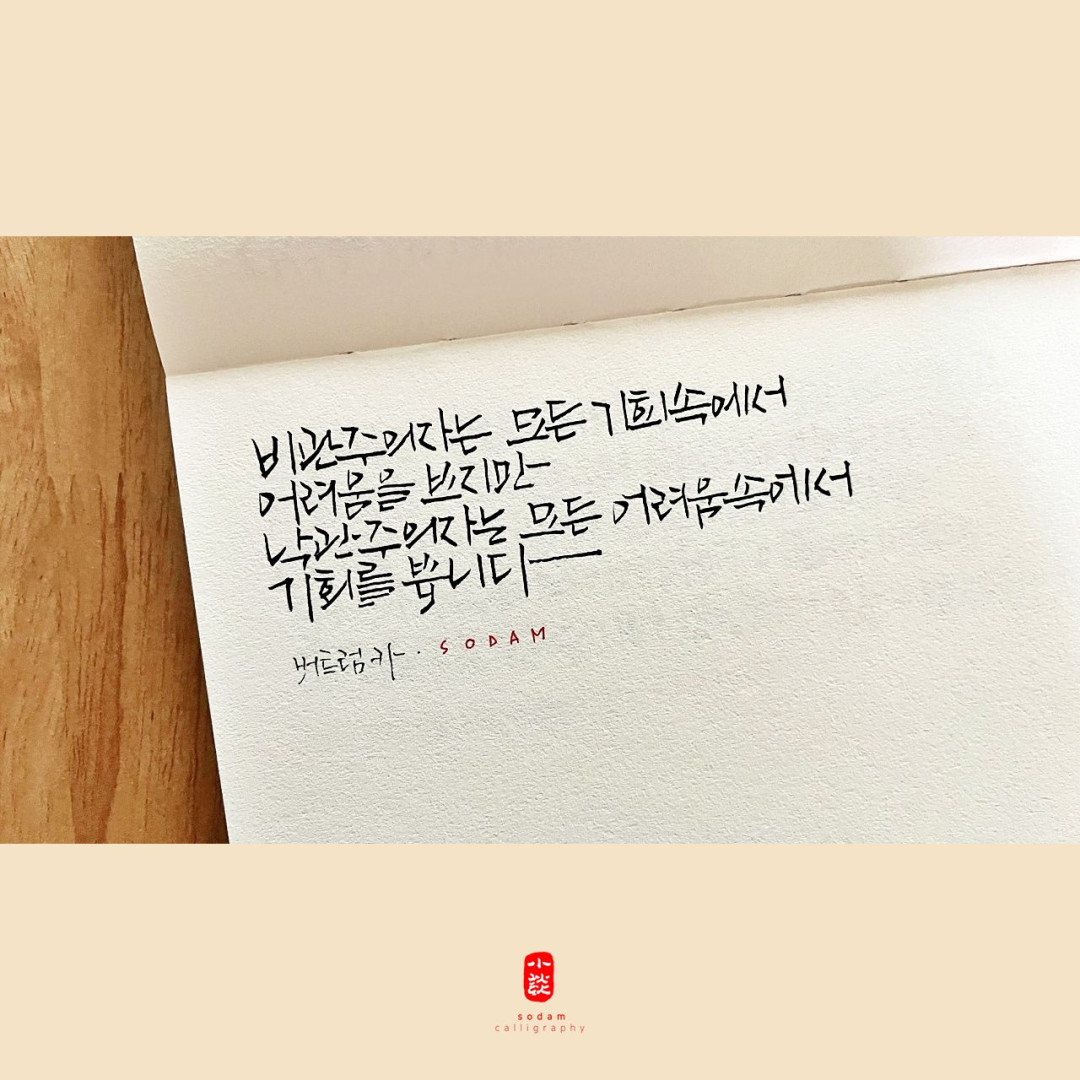 비관주의자는 모든 기회속에서
어려움을 보지만
낙관주의자는 모든 어려움속에서
기회를 봅니다
버트럼 카 · SODAM
小談
sodam
calligraphy